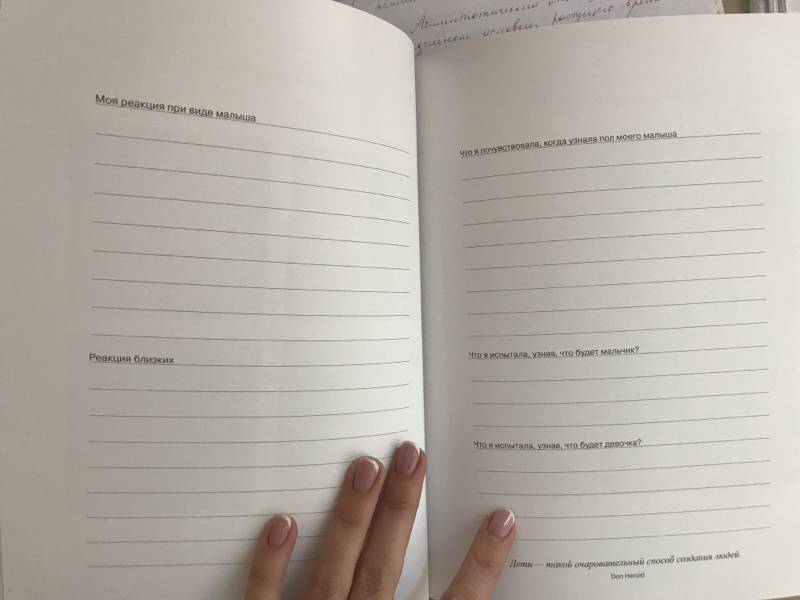 Асимптотический
условии растущего
Моя реакция при виде малыша
Реакция близких
Что я почувствовала, когда узнала пол моего малыша
Что я испытала, узнав, что будет мальчик?
Что я испытала, узнав, что будет девочка?
Дети — такой очаровательный способ создания людей.
Don Herold